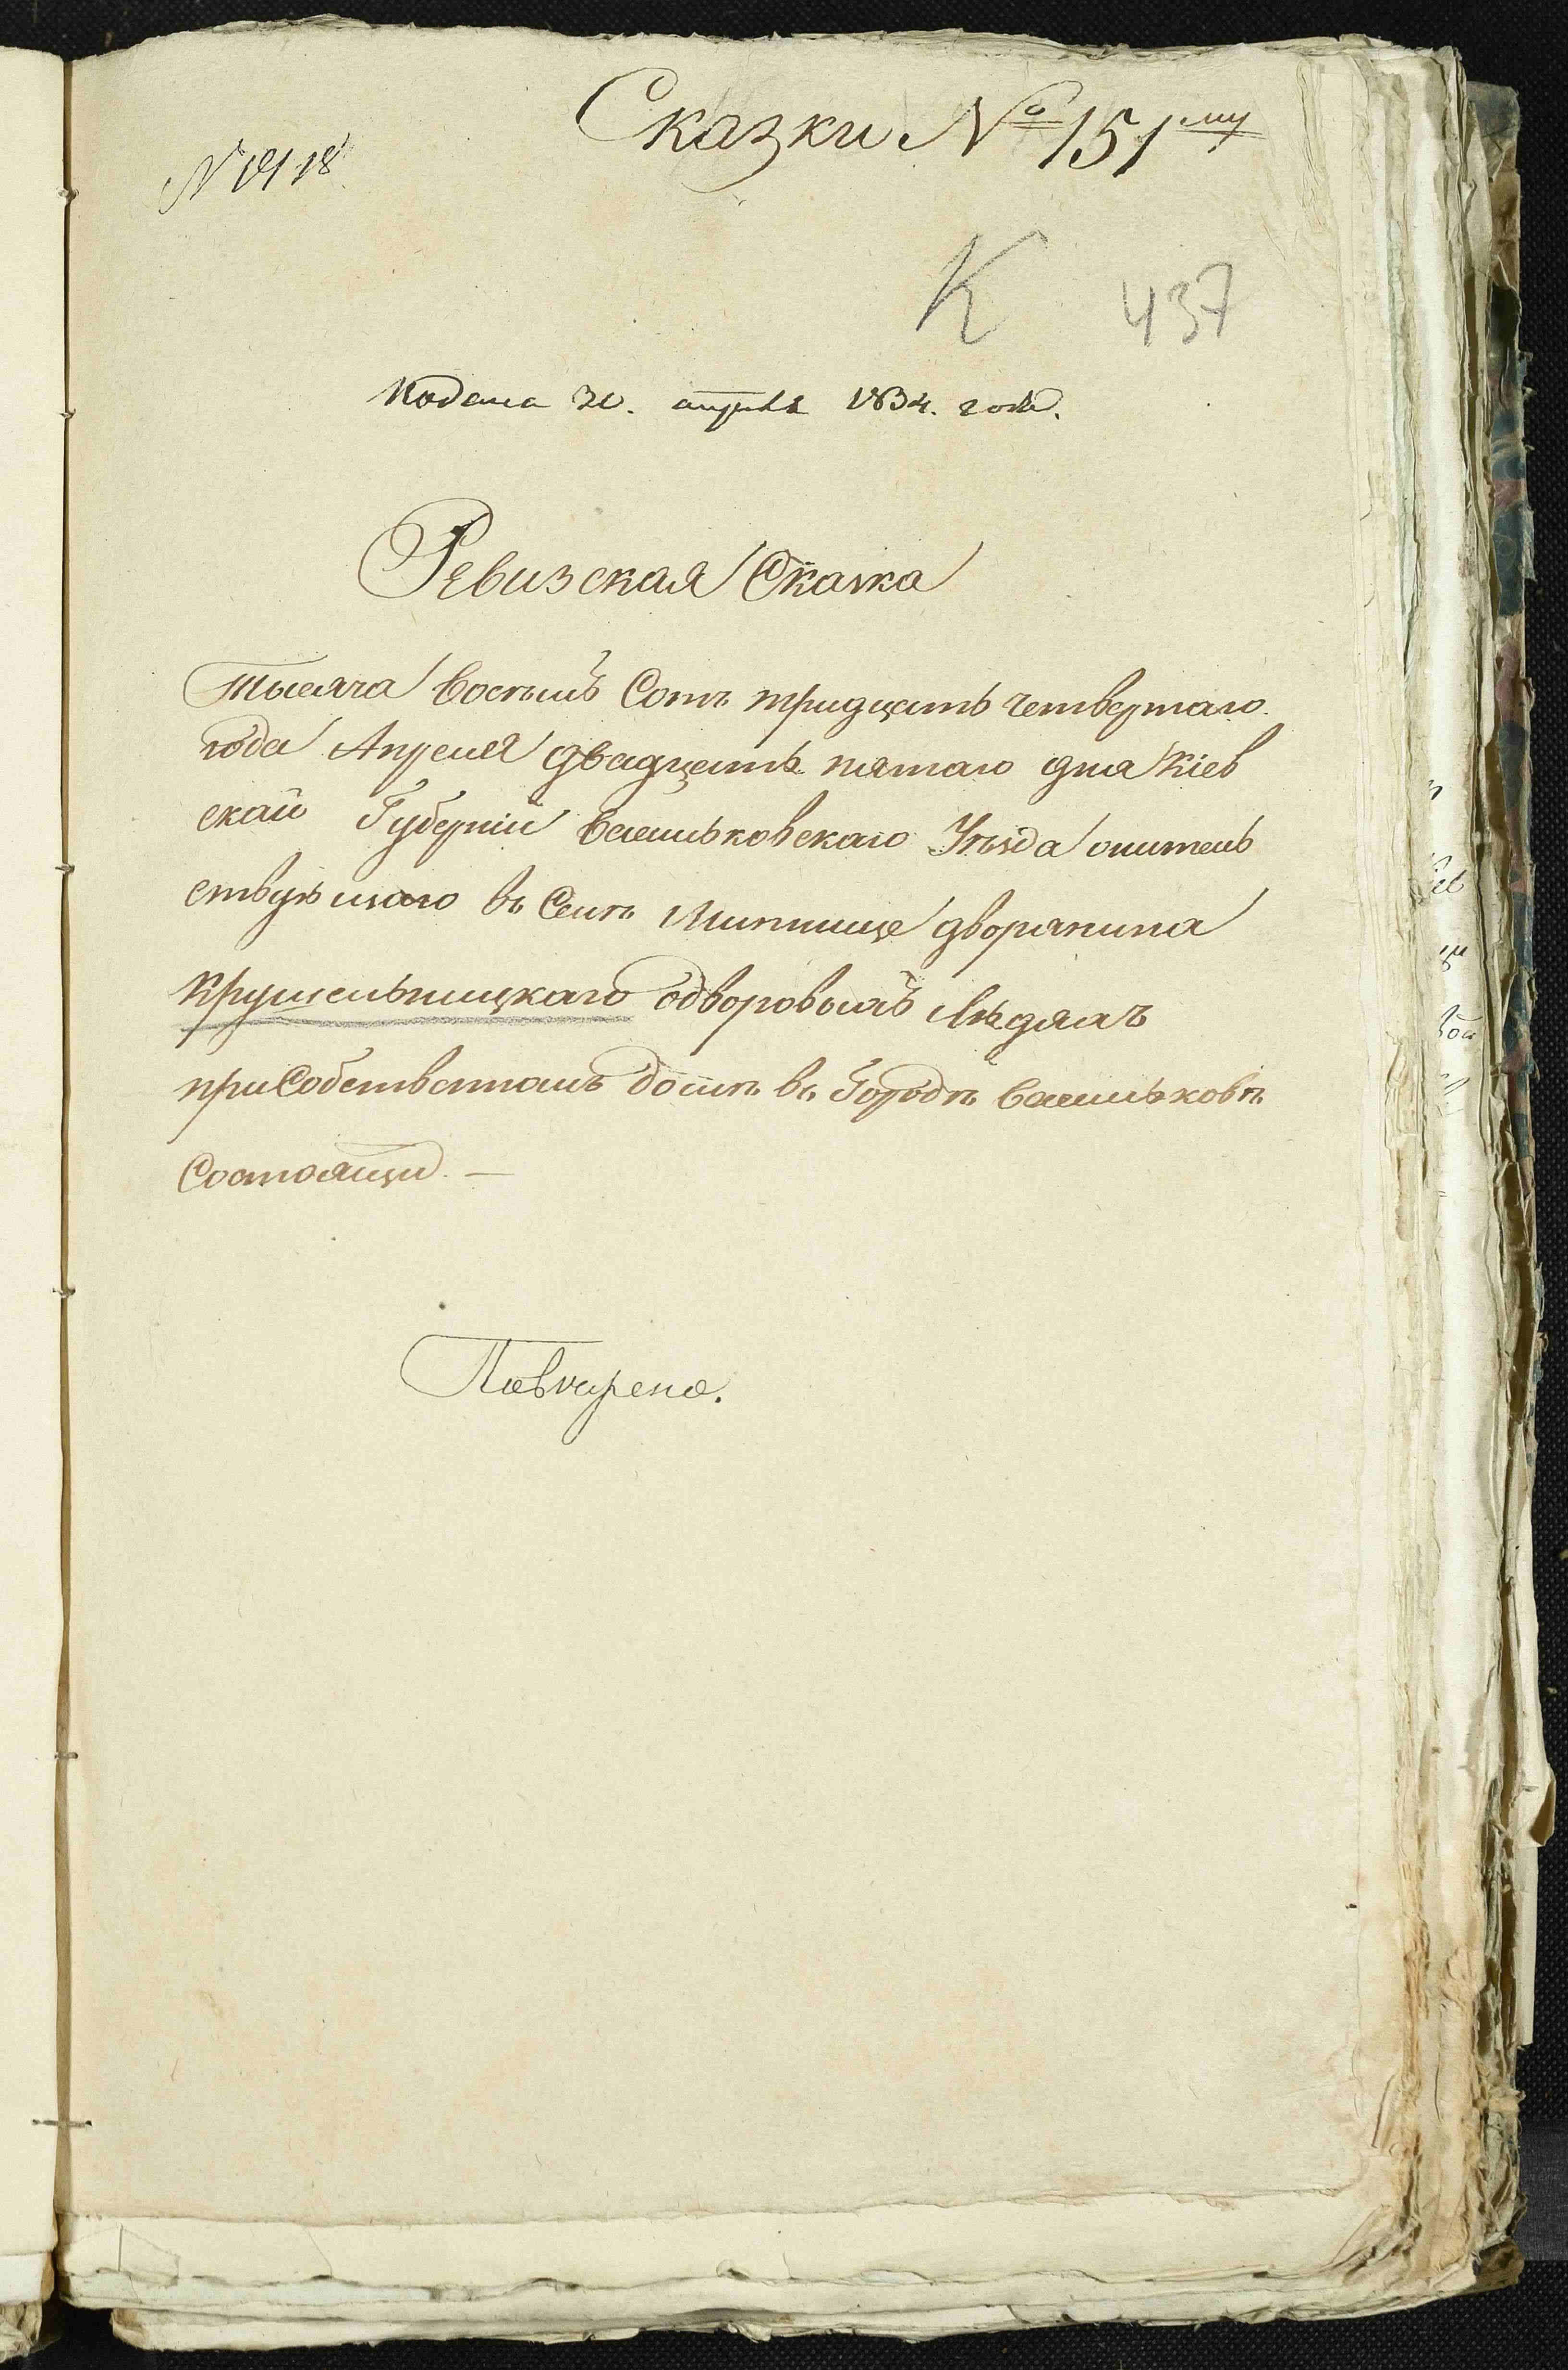 Сказки № 151му
N 1918
К 437
Подана 30. апреля 1834. года.
Ревизская Сказка
Тысяча восемь Сотъ тридцать четвертаго
года Апреля двадцать пятаго дня Кіев
ской Губерніи васильковскаго Уѣзда жител
ствующаго въ Селѣ Мытнице дворянина
Крушельницкаго одворовыхъ людяхъ
при Собственномъ домѣ въ Городѣ васильковѣ
Состоящи. —
Поверено.